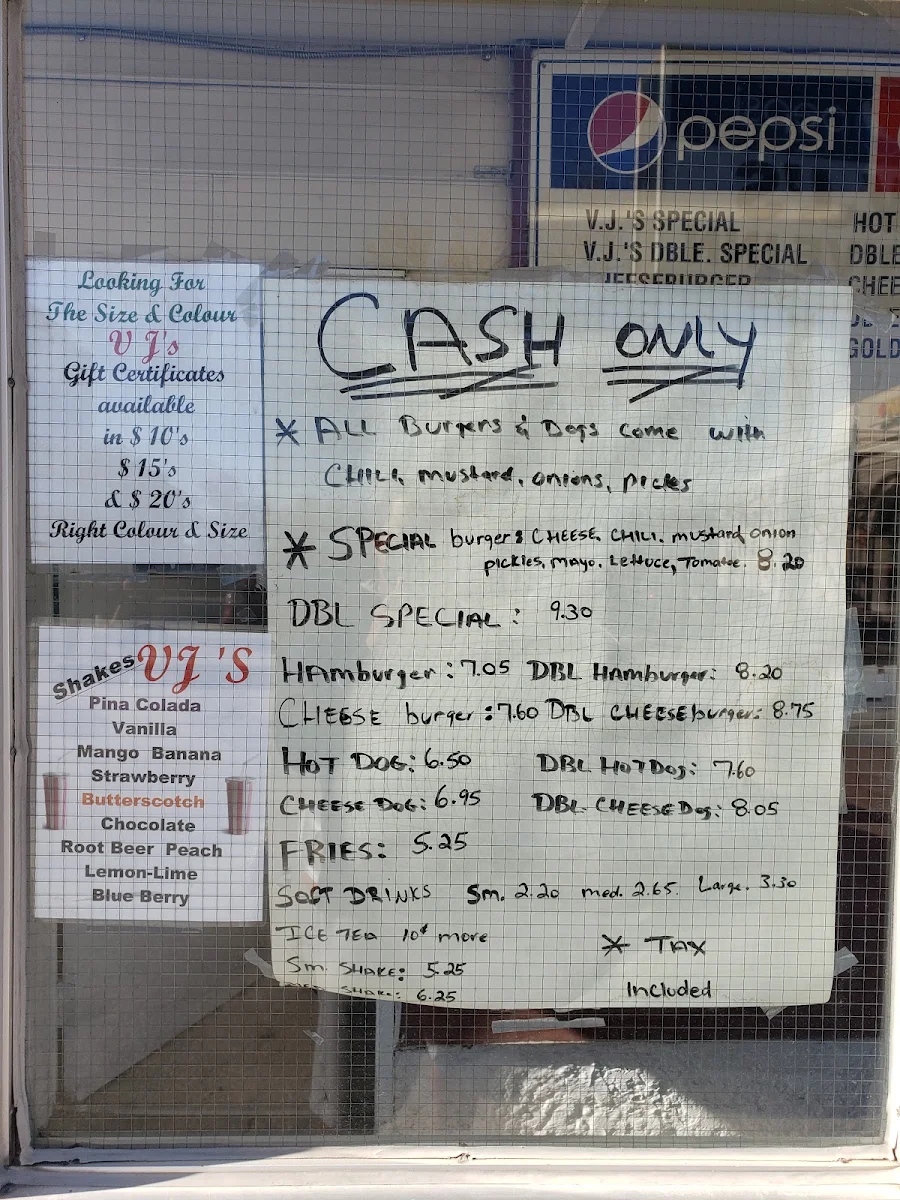 pepsi
V.J.'S SPECIAL
V.J.'S DBLE. SPECIAL
HOT
DBLE
CHEE
GOLD
Looking For
The Size & Colour
V J's
Gift Certificates
available
in $ 10's
$ 15's
& $ 20's
Right Colour & Size
Shakes VJ 'S
Pina Colada
Vanilla
Mango Banana
Strawberry
Butterscotch
Chocolate
Root Beer Peach
Lemon-Lime
Blue Berry
CASH ONLY
* ALL Burgers & Dogs come with
CHILI, mustard, onions, pickes
* SPECIAL burger: CHEESE, CHILI, mustard, onion
pickles, mayo, Lettuce, Tomatoe. 8.20
DBL SPECIAL: 9.30
HAmburger: 7.05 DBL HAmburger: 8.20
CHEESE burger: 7.60 DBL CHEESEburger: 8.75
HOT DOG: 6.50 DBL HOTDOg: 7.60
CHEESE DOG: 6.95 DBL CHEESEDog: 8.05
FRIES: 5.25
SOFT DRINKS Sm. 2.20 med. 2.65. Large. 3.30
ICE TEA 10¢ more
Sm. SHAKE: 5.25
SHAKE: 6.25
* TAX
Included